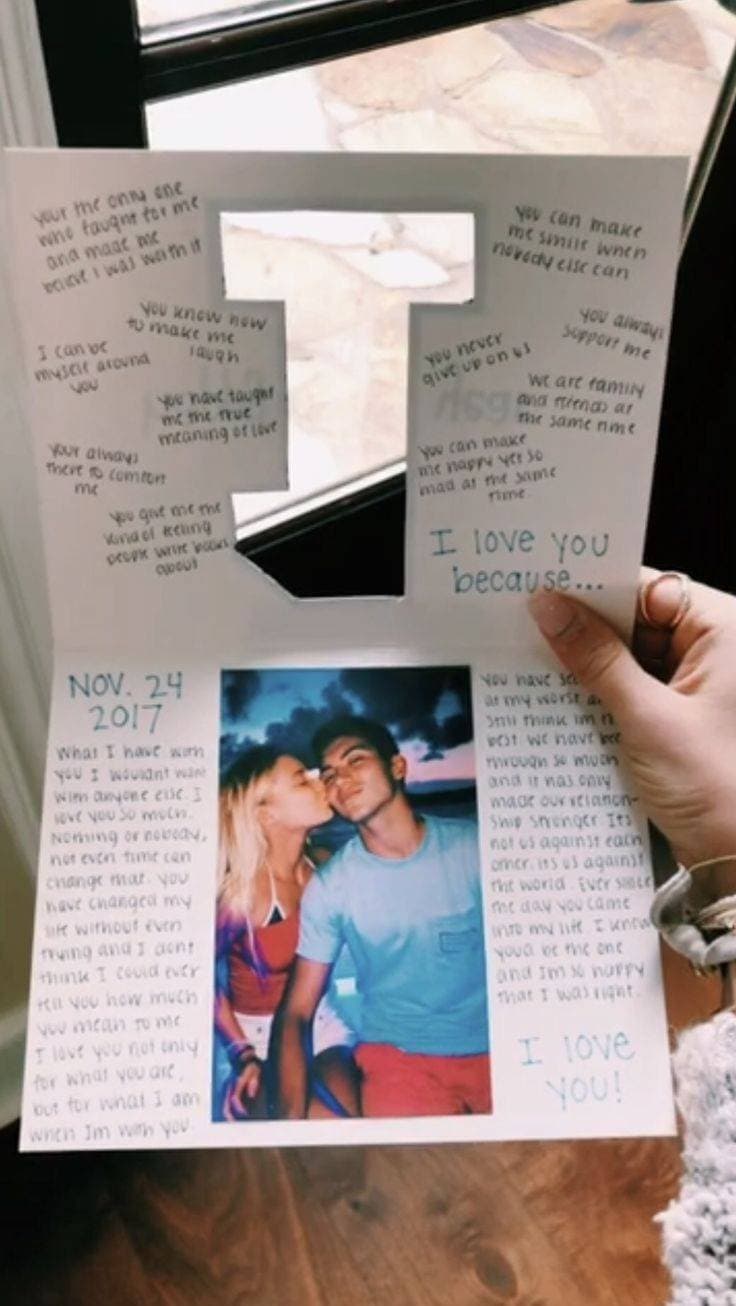 your the only one
who faught for me
and made me
believe I was worth it
You know how
to make me
laugh
I can be
myself around
you
You have taught
me the true
meaning of love
Your always
there to comfort
me
You give me the
kind of feeling
people write books
about
You can make
me smile when
nobody else can
You always
support me
You never
give up on us
We are family
and friends at
the same time
You can make
me happy yet so
mad at the same
time.
I love you
because...
NOV. 24
2017
What I have with
you I wouldnt want
with anyone else. I
love you so much.
Nothing or nobody,
not even time can
change that. You
have changed my
life without even
trying and I dont
think I could ever
tell you how much
you mean to me
I love you not only
for what you are,
but for what I am
when Im with you.
You have
at my worst
still think im
best we have
through so much
and it has only
made our relation-
ship stronger Its
not us against each
other, its us against
the world. Ever since
the day you came
into my life. I knew
youd be the one
and Im so happy
that I was right.
I love
you!